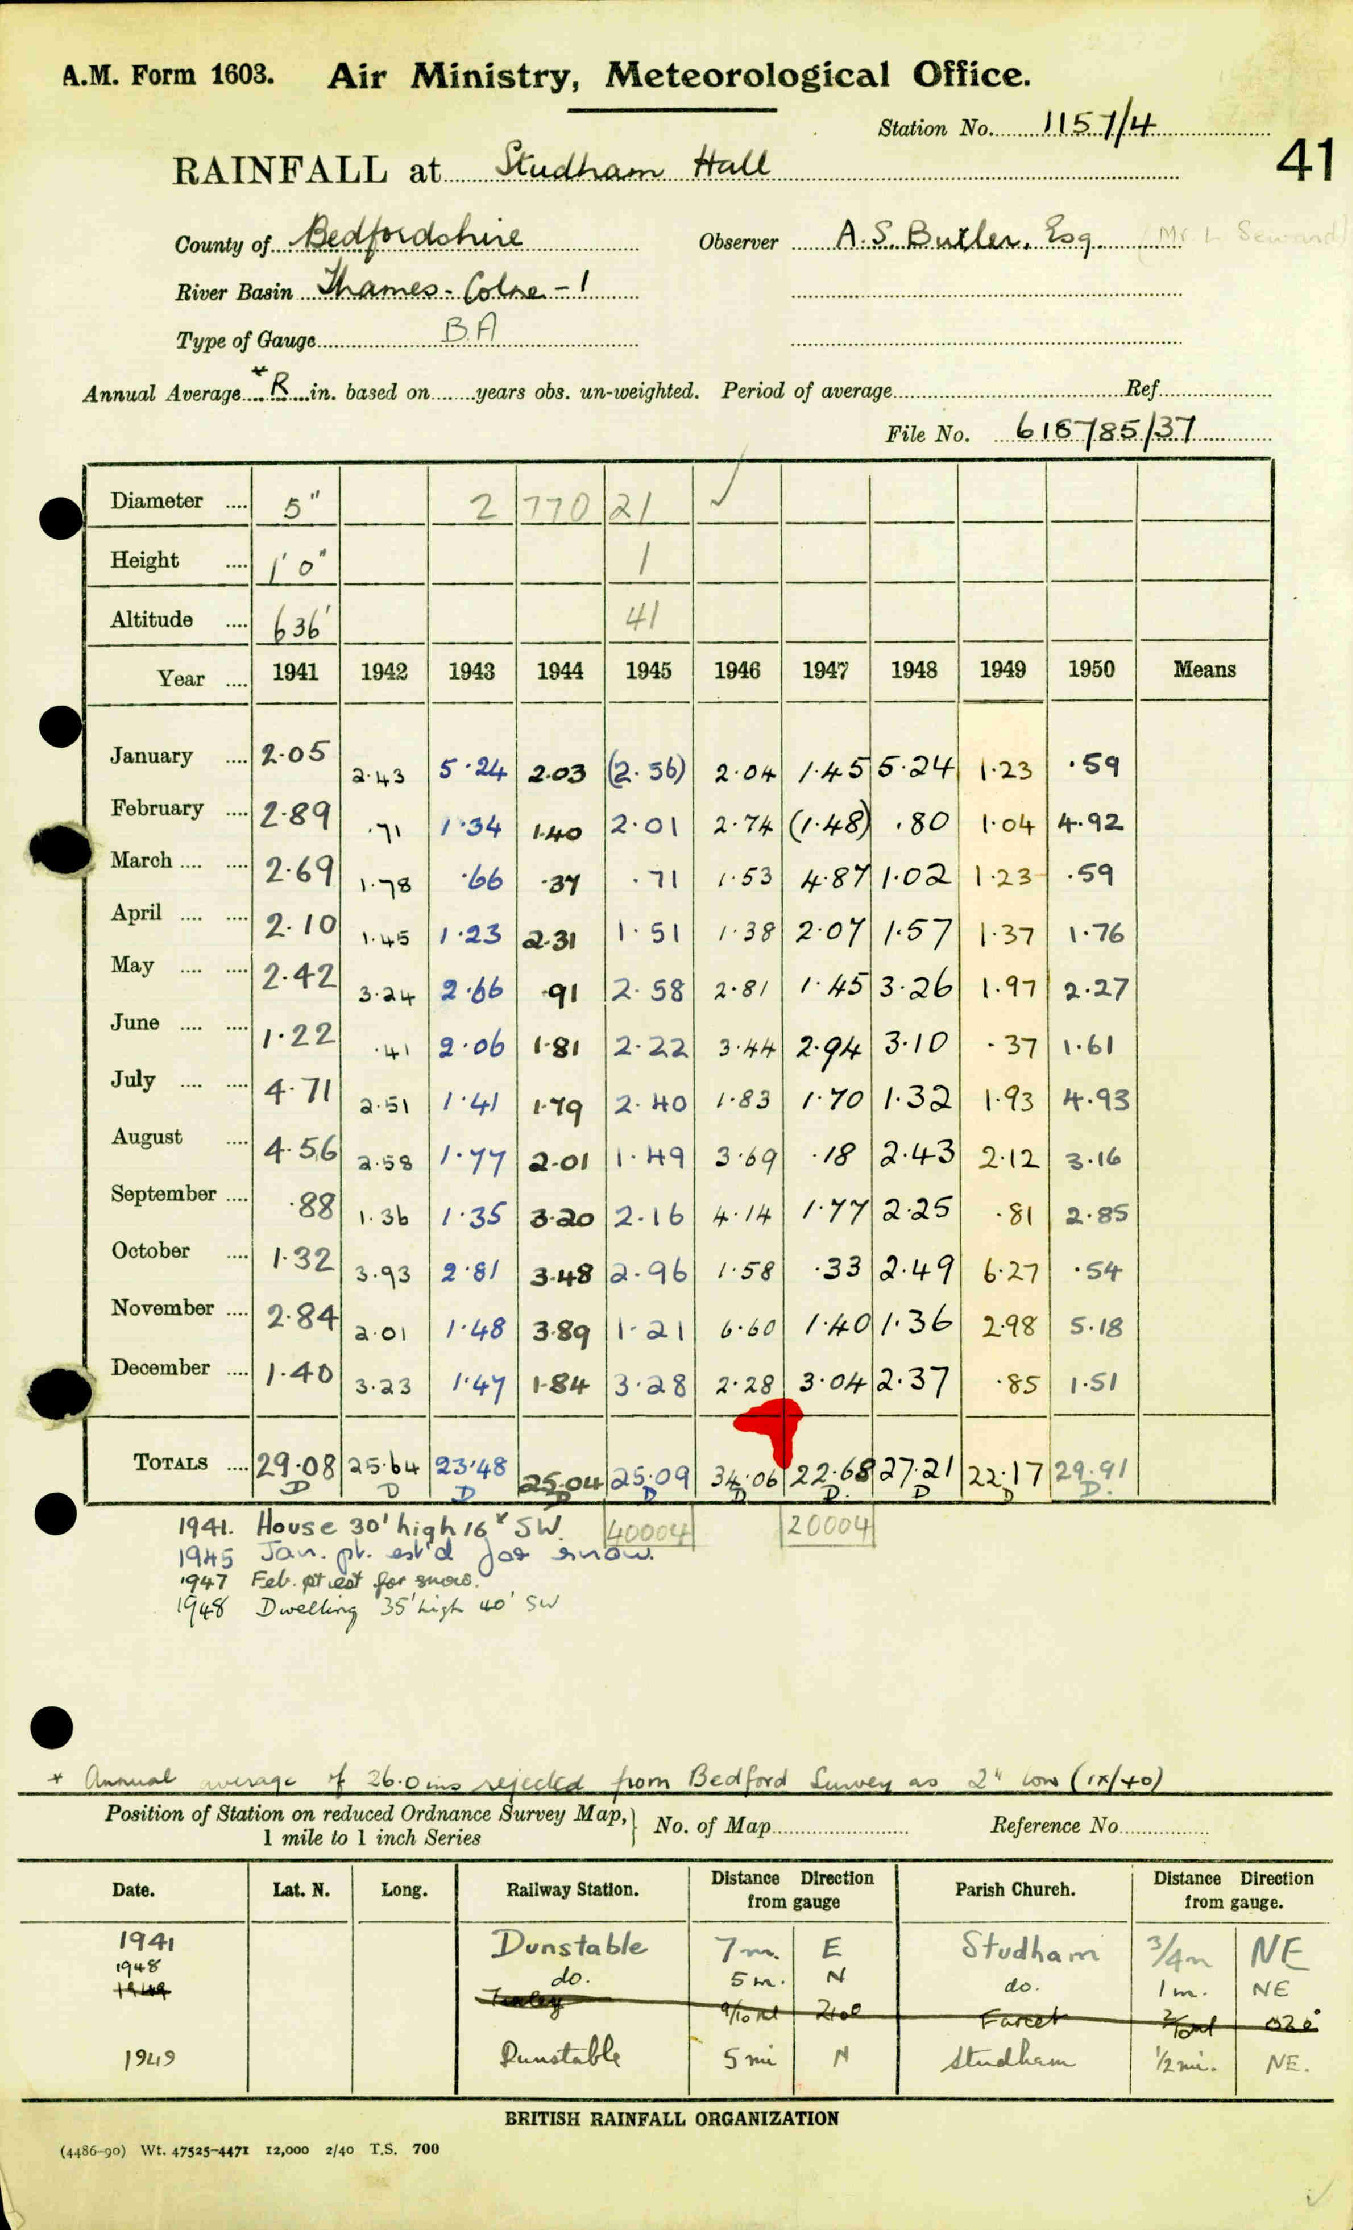 A.M. Form 1603. Air Ministry, Meteorological Office.
Station No. 1157/4
41
RAINFALL at Studham Hall
County of Bedfordshire Observer A.S. Butler, Esq. (Mr. L. Seward)
River Basin Thames - Colne - 1
Type of Gauge B.A
Annual Average * R in. based on years obs. un-weighted. Period of average Ref
File No. 618785/37
Diameter .... 5" 2 770 21 ✓
Height .... 1' 0" 1
Altitude .... 636' 41
Year .... 1941 1942 1943 1944 1945 1946 1947 1948 1949 1950 Means
January .... 2.05 2.43 5.24 2.03 (2.56) 2.04 1.45 5.24 1.23 .59
February .... 2.89 .71 1.34 1.40 2.01 2.74 (1.48) .80 1.04 4.92
March .... .... 2.69 1.78 .66 .37 .71 1.53 4.87 1.02 1.23 .59
April .... .... 2.10 1.45 1.23 2.31 1.51 1.38 2.07 1.57 1.37 1.76
May .... .... 2.42 3.24 2.66 .91 2.58 2.81 1.45 3.26 1.97 2.27
June .... .... 1.22 .41 2.06 1.81 2.22 3.44 2.94 3.10 .37 1.61
July .... .... 4.71 2.51 1.41 1.79 2.40 1.83 1.70 1.32 1.93 4.93
August .... 4.56 2.58 1.77 2.01 1.49 3.69 .18 2.43 2.12 3.16
September .... .88 1.36 1.35 3.20 2.16 4.14 1.77 2.25 .81 2.85
October .... 1.32 3.93 2.81 3.48 2.96 1.58 .33 2.49 6.27 .54
November .... 2.84 2.01 1.48 3.89 1.21 6.60 1.40 1.36 2.98 5.18
December .... 1.40 3.23 1.47 1.84 3.28 2.28 3.04 2.37 .85 1.51
TOTALS .... 29.08 25.64 23.48 25.04 25.09 34.06 22.68 27.21 22.17 29.91
D D D D D D D. D D D.
1941. House 30' high 16' SW. 40004 20004
1945 Jan. pt. est'd for snow.
1947 Feb. pt est for snow.
1948 Dwelling 35' high 40' SW
* Annual average of 26.0 ins rejected from Bedford Survey as 2" low (IX/40)
Position of Station on reduced Ordnance Survey Map, } No. of Map Reference No
1 mile to 1 inch Series
Date. Lat. N. Long. Railway Station. Distance Direction from gauge Parish Church. Distance Direction from gauge.
1941 Dunstable 7 m. E Studham 3/4 m NE
1948 do. 5 m. N do. 1 m. NE
1949 9/10 ml 210° Farcet 2/10 ml 020°
1949 Dunstable 5 mi N Studham 1/2 mi. NE.
BRITISH RAINFALL ORGANIZATION
(4486-90) Wt. 47525-4471 12,000 2/40 T.S. 700